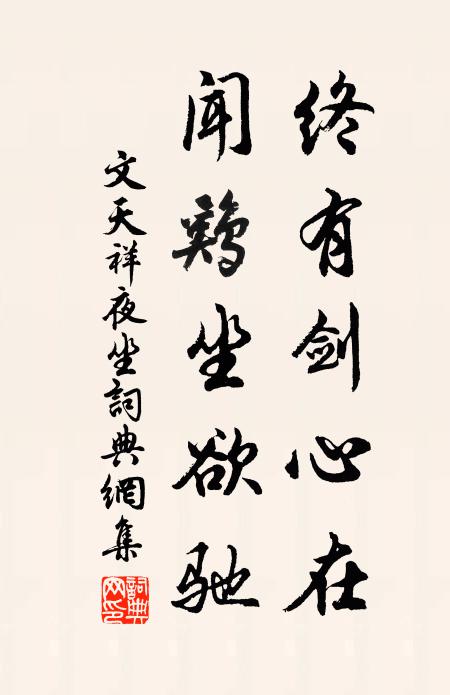 终有剑心在
闻鸡坐欲驰
文天祥夜坐詞典網集
詞典
网印